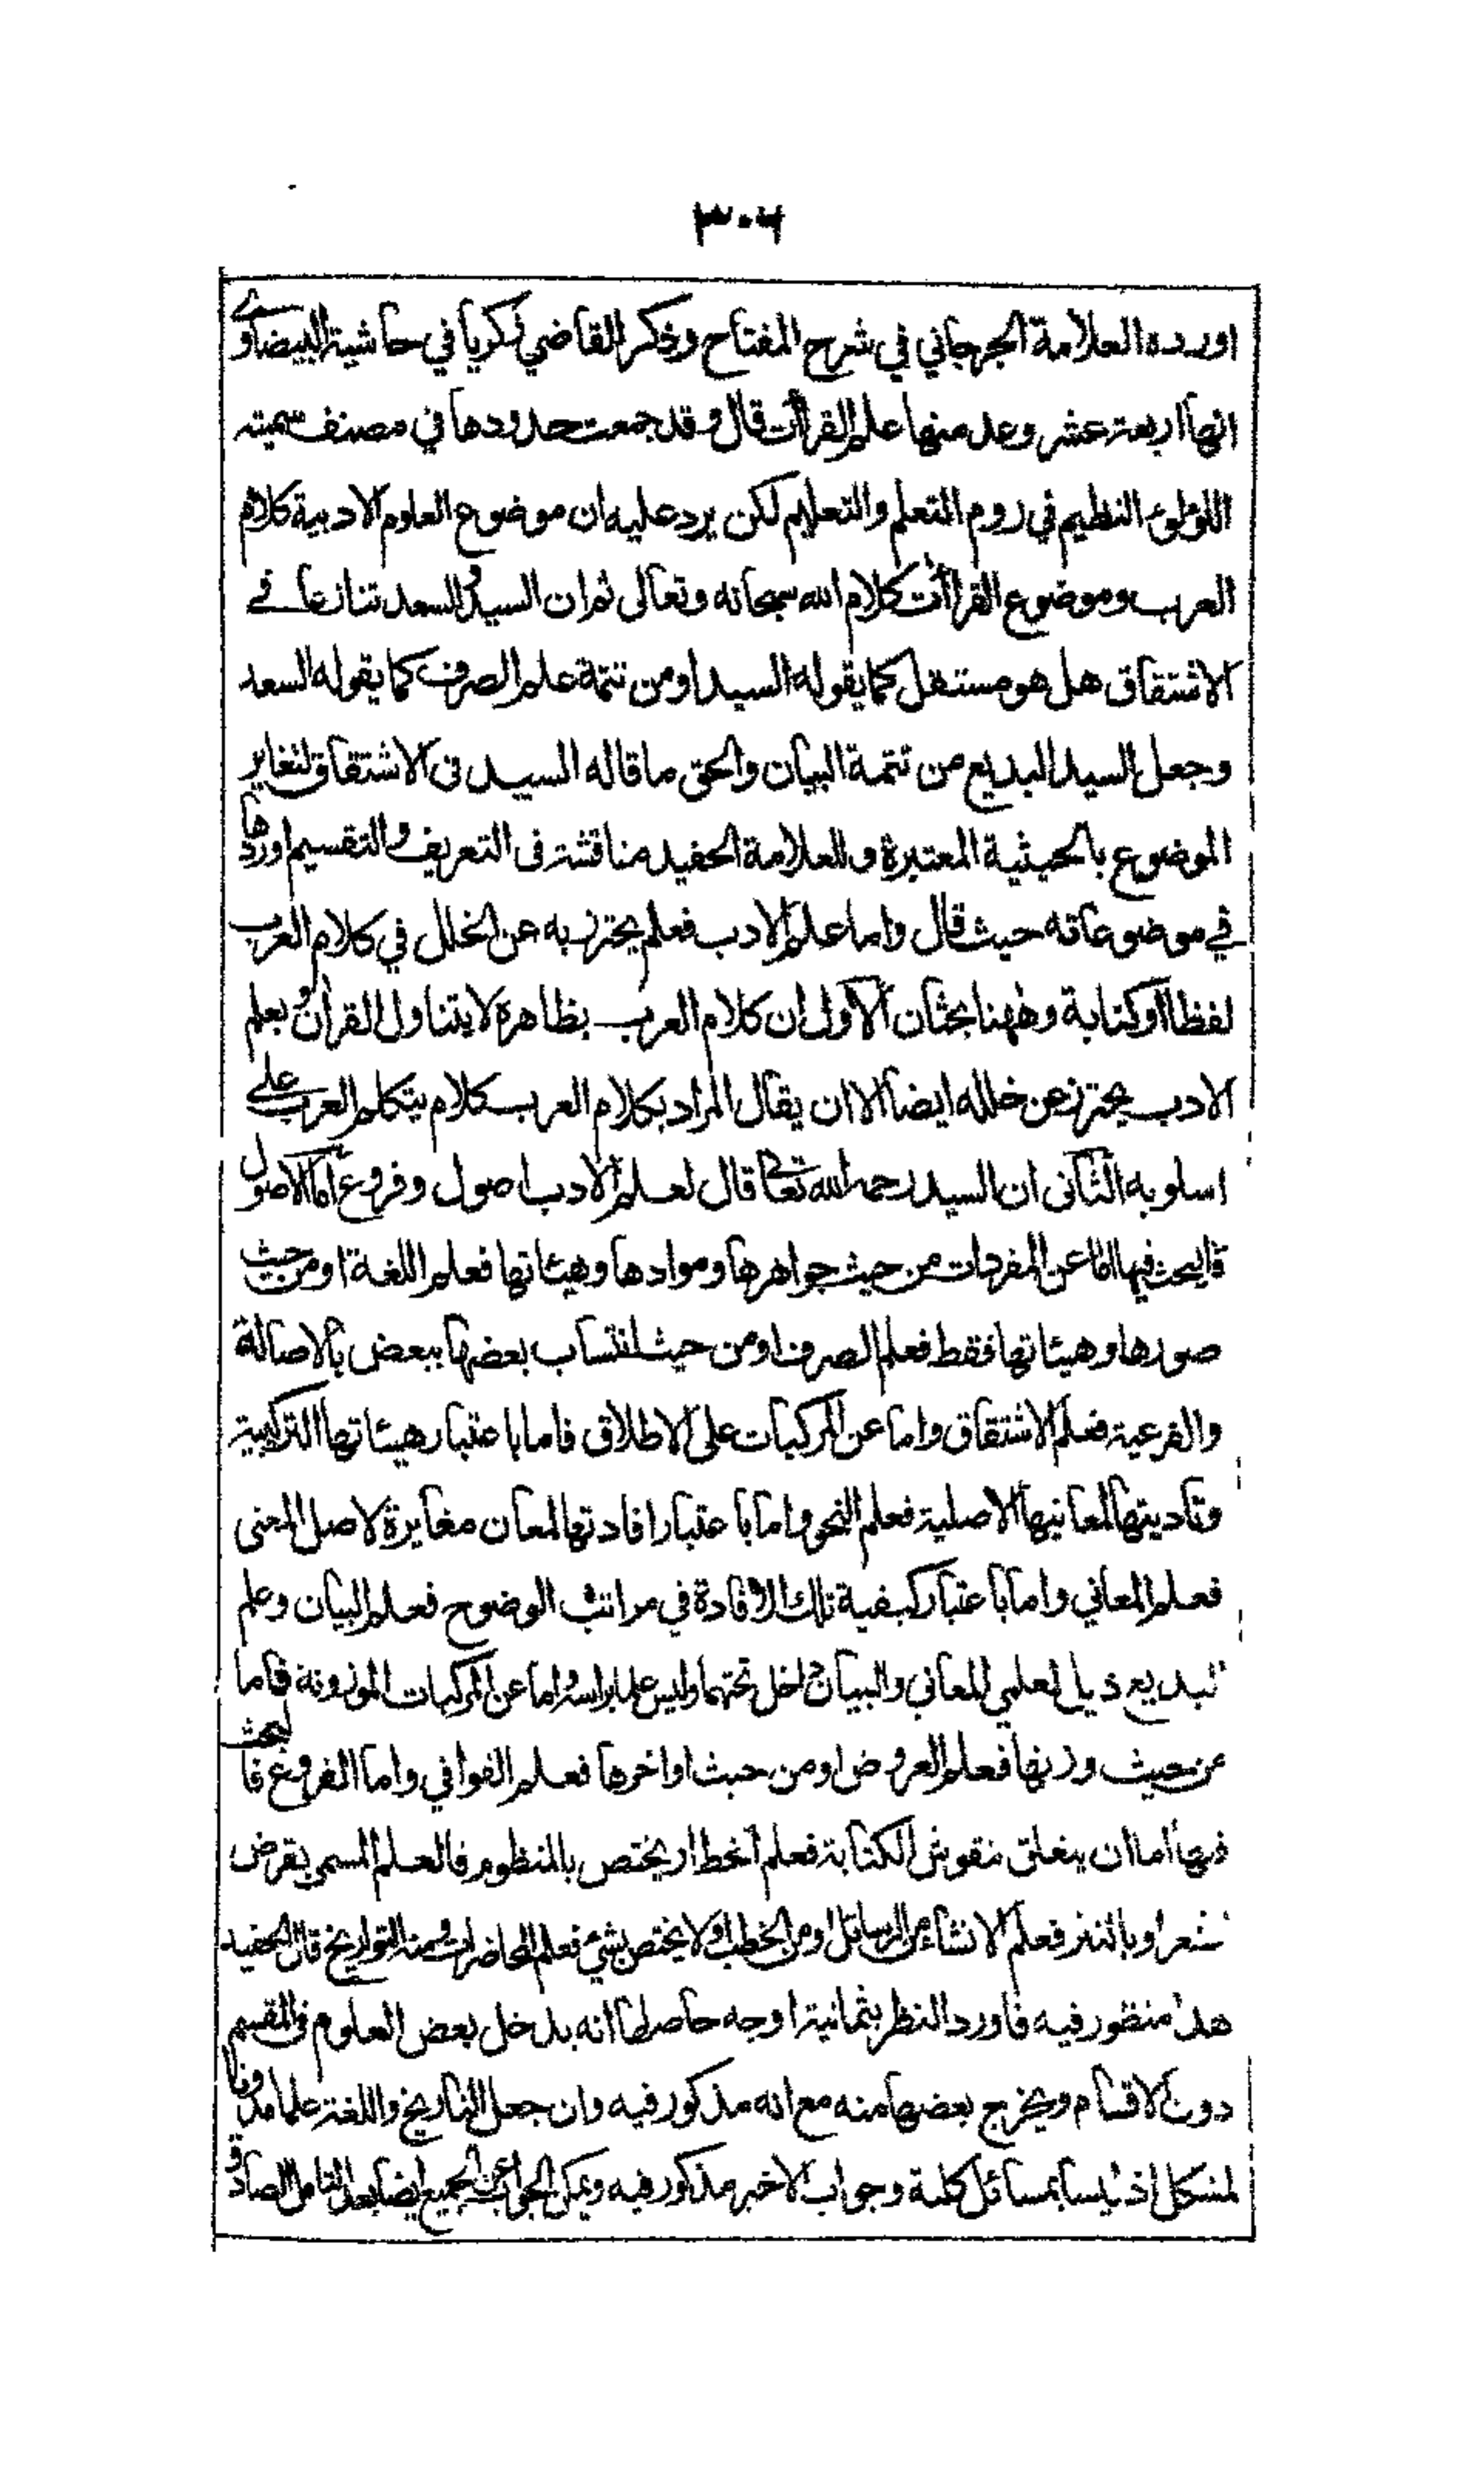 ٣٠٦
اورده العلامة الجرجاني في شرح المفتاح وذكر القاضي زكريا في حاشية البيضاوي
انها اربعة عشر وعد منها علم القراآت قال وقد جمعت حدودها في مصنف سميته
اللؤلؤ النظيم في روم التعلم والتعليم لكن يرد عليه ان موضوع العلوم الادبية كلام
العرب وموضوع القراآت كلام الله سبحانه وتعالى ثم ان السيد والسعد تنازعا في
الاشتقاق هل هو مستقل كما يقوله السيد او من تتمة علم الصرف كما يقوله السعد
وجعل السيد البديع من تتمة البيان والحق ما قاله السيد في الاشتقاق لتغاير
الموضوع بالحيثية المعتبرة وللعلامة الحفيد مناقشة في التعريف والتقسيم اوردها
في موضوعاته حيث قال واما علم الادب فعلم يحترز به عن الخلل في كلام العرب
لفظا او كتابة وههنا بحثان الاول ان كلام العرب بظاهره لا يتناول القرآن وبعلم
الادب يحترز عن خلله ايضا الا ان يقال المراد بكلام العرب كلام يتكلم العرب على
اسلوبه الثاني ان السيد رحمه الله تعالى قال لعلم الادب اصول وفروع اما الاصول
فالبحث فيها اما عن المفردات من حيث جواهرها وموادها وهيئاتها فعلم اللغة او من حيث
صورها وهيئاتها فقط فعلم الصرف او من حيث انتساب بعضها ببعض بالاصالة
والفرعية فعلم الاشتقاق واما عن المركبات على الاطلاق فاما باعتبار هيئاتها التركيبية
وتأديتها لمعانيها الاصلية فعلم النحو واما باعتبار افادتها لمعان مغايرة لاصل المعنى
فعلم المعاني واما باعتبار كيفية تلك الافادة في مراتب الوضوح فعلم البيان وعلم
البديع ذيل لعلمي المعاني والبيان داخل تحتهما وليس علما براسه واما عن المركبات الموزونة فاما
من حيث وزنها فعلم العروض او من حيث اواخرها فعلم القوافي واما الفروع فالبحث
فيها اما ان يتعلق بنقوش الكتابة فعلم الخط او يختص بالمنظوم فالعلم المسمى بقرض
الشعر او بالنثر فعلم الانشاء من الرسائل او من الخطب او لا يختص بشئ فعلم المحاضرات ومنه التواريخ قال الحفيد
هذا منظور فيه فاورد النظر بثمانية اوجه حاصلها انه يدخل بعض العلوم في المقسم
دون الاقسام ويخرج بعضها منه مع انه مذكور فيه وان جعل التاريخ واللغة علما مدونا
لمشكل اذ ليسا بمسائل كلية وجواب الاخير مذكور فيه ويمكن الجواب عن الجميع ايضا بعد التامل الصادق